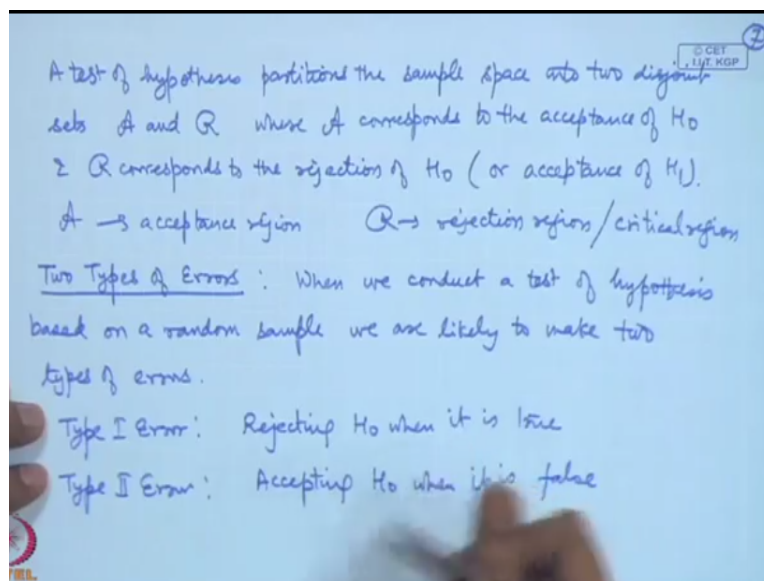 7
© CET
I.I.T. KGP
A test of hypothesis partitions the sample space into two disjoint
sets A and R where A corresponds to the acceptance of H0
& R corresponds to the rejection of H0 (or acceptance of H1).
A → acceptance region R → rejection region / critical region
Two Types of Errors : When we conduct a test of hypothesis
based on a random sample we are likely to make two
types of errors.
Type I Error : Rejecting H0 when it is true
Type II Error : Accepting H0 when it is false